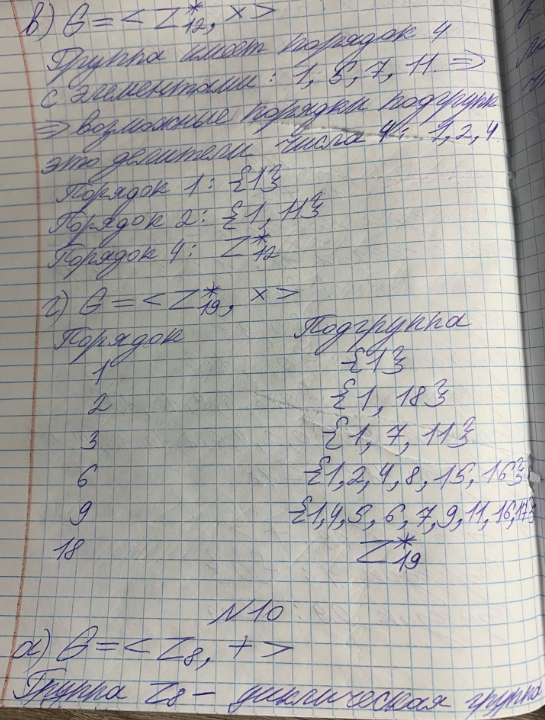 в) G = < Z*₁₂, × >
Группа имеет порядок 4
с элементами: 1, 5, 7, 11. ⇒
⇒ возможные порядки подгрупп
это делители числа 4: 1, 2, 4
Порядок 1: {1}
Порядок 2: {1, 11}
Порядок 4: Z*₁₂
г) G = < Z*₁₉, × >
Порядок Подгруппа
1 {1}
2 {1, 18}
3 {1, 7, 11}
6 {1, 2, 4, 8, 15, 16}
9 {1, 4, 5, 6, 7, 9, 11, 16, 17}
18 Z*₁₉
N10
а) G = < Z₈, + >
Группа Z₈ – циклическая группа